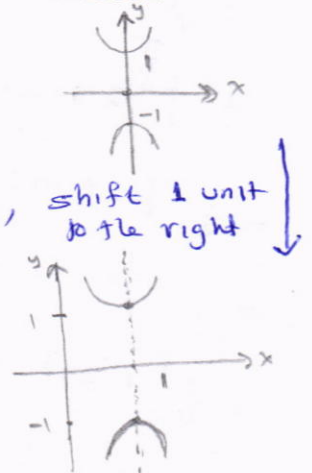 y
1
x
-1
, shift 1 unit
to the right
y
1
x
1
-1